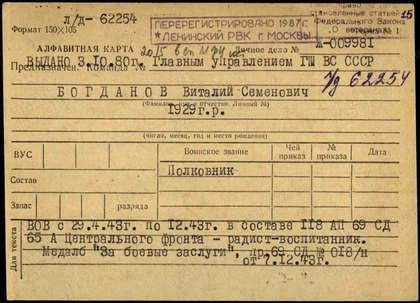 л/д- 62254
ПЕРЕРЕГИСТРИРОВАНО 1987г.
ЛЕНИНСКИЙ РВК г. МОСКВЫ
становленные статьей
Федерального Закона
„О ветеранах
15
Формат 150×105
АЛФАВИТНАЯ КАРТА
Личное дело №
Ж-009981
ВЫДАНО 3.10.80г. Главным управлением ГШ ВС СССР
Предназначен. Команда №
л/д 62254
БОГДАНОВ Виталий Семенович
(Фамилия, имя и отчество. Личный №)
1929г.р.
(число, месяц, год и место рождения)
ВУС
Воинское звание
Чей приказ
№ приказа
Дата
Состав
Полковник
Запас
разряда
Для текста
ВОВ с 29.4.43г. по 12.43г. в составе 118 АП 69 СД
65 А Центрального фронта - радист-воспитанник.
Медаль "За боевые заслуги", пр.69 СД № 018/н
от 7.12.43г.